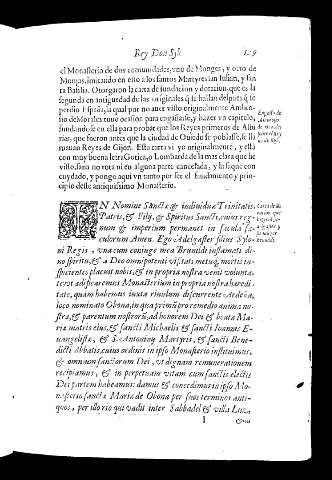 Rey Don Sylo 129
el Monasterio de dos comunidades, vno de Monges, y otro de
Monjas, imitando en esto a los santos Martyres san Iulian, y san
ta Basilisa. Otorgaron la carta de fundacion y dotacion, que es la
segunda en antiguedad de las originales q̃ se hallan despues q̃ se
perdio España, la qual por no auer visto original mente Ambro
sio de Morales tuuo ocasion para engañarse, y hazer vn capitulo,
fundandose en ella para prouar que los Reyes primeros de Astu
rias, que fueron antes que la ciudad de Ouiedo se poblasse, se lla
mauan Reyes de Gijon. Esta carta vi yo original mente, y està
con muy buena letra Gotica, o Lombarda de la mas clara que he
visto, sana no rota ni en alguna parte cancelada, y la saque con
cuydado, y pongo aqui vn tanto por ser el fundamento y prin-
cipio deste antiquissimo Monasterio.
Engaño de
Ambrosio
de Morales
IN Nomine Sanctæ & indiuiduæ Trinitatis,
Patris, & Filij, & Spiritus Sancti, cuius reg-
num & imperium permanet in sæcula sæ-
culorum Amen. Ego Adelgaster filius Sylo-
ni Regis, vna cum coniuge mea Brunildi inflamati di-
no spiritu, & à Deo omnipotenti visitati metuq̃ mortis in-
spicientes placuit nobis, & in propria nostra venit volunta-
te vt ædificaremus Monasterium in propria nostra hæredi-
tate, quam habemus iuxta riuulum discurrente
loco nominato Obona, in qua primũ pro remedio animæ no-
stræ, & parentum nostrorũ, ad honorem Dei & beatæ Ma-
riæ matris eius, & sancti Michaelis & sancti Ioannis E-
uangelistæ, & S. Antonini Martyris, & sancti Bene-
dicti abbatis, cuius ordinis in ipso Monasterio instituimus,
& omnium sanctorum Dei, vt dignam remunerationem
recipiamus, & in perpetuam vitam cum sanctis electis
Dei partem habeamus: damus & concedimus in ipso Mo-
nasterio sanctæ Mariæ de Obona per suos terminos anti-
quos, per illo rio qui vadit inter Sabbadel & villa Luz,
I